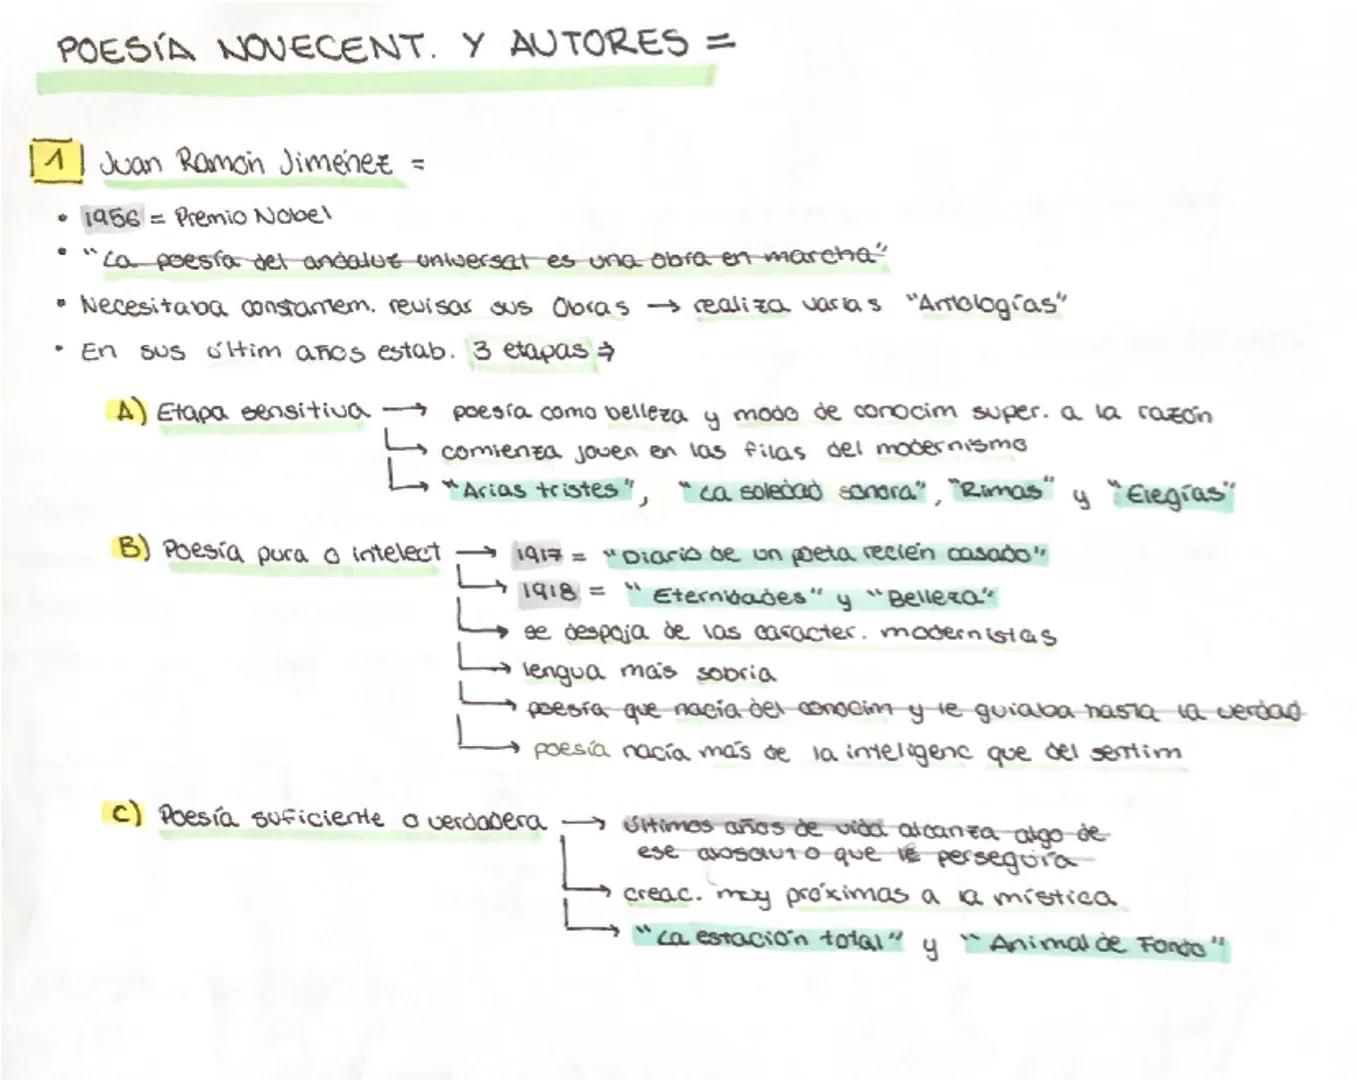 POESÍA NOVECENT. Y AUTORES =
1 Juan Ramón Jiménez =
• 1956 = Premio Nobel
• "La poesía del andaluz universal es una obra en marcha"
• Necesitaba constantem. revisar sus Obras → realiza varias "Antologías"
• En sus últim años estab. 3 etapas ⇒
A) Etapa sensitiva → poesía como belleza y modo de conocim super. a la razón
↳ comienza joven en las filas del modernismo
↳ "Arias tristes", "La soledad sonora", "Rimas" y "Elegías"
B) Poesía pura o intelect → 1917 = "Diario de un poeta recién casado"
↳ 1918 = "Eternidades" y "Belleza"
↳ se despoja de las caracter. modernistas
↳ lengua más sobria
↳ poesía que nacía del conocim y le guiaba hasta la verdad
↳ poesía nacía más de la inteligenc que del sentim
C) Poesía suficiente o verdadera → últimos años de vida alcanza algo de
ese absoluto que le perseguía
↳ creac. muy próximas a la mística
↳ "La estación total" y "Animal de Fondo"